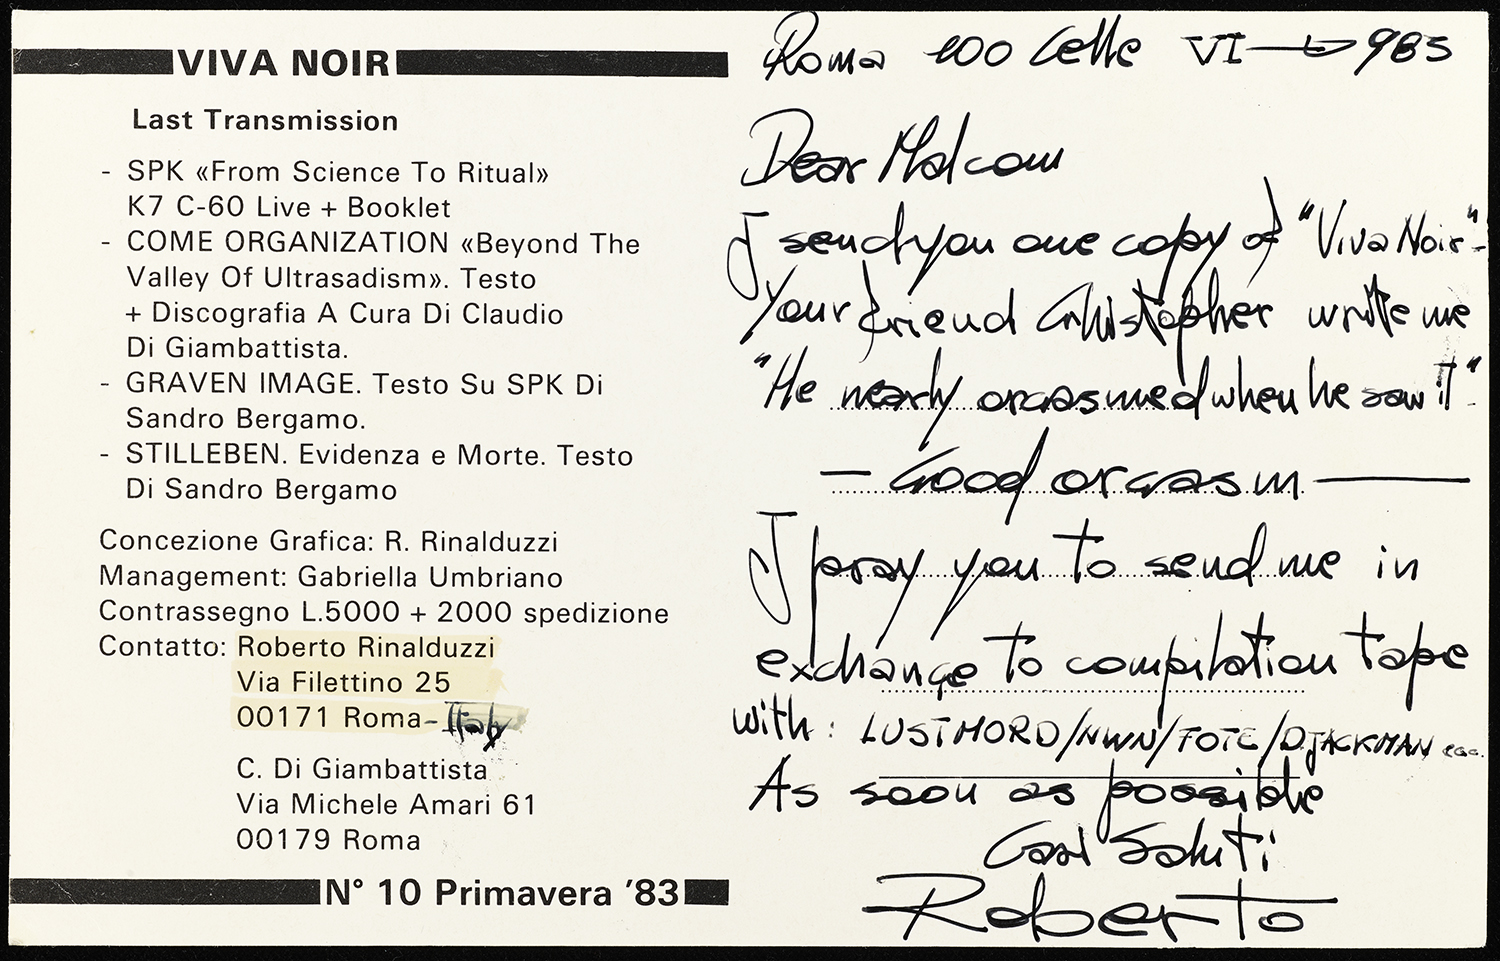 VIVA NOIR
Last Transmission
- SPK «From Science To Ritual»
K7 C-60 Live + Booklet
- COME ORGANIZATION «Beyond The
Valley Of Ultrasadism». Testo
+ Discografia A Cura Di Claudio
Di Giambattista.
- GRAVEN IMAGE. Testo Su SPK Di
Sandro Bergamo.
- STILLEBEN. Evidenza e Morte. Testo
Di Sandro Bergamo
Concezione Grafica: R. Rinalduzzi
Management: Gabriella Umbriano
Contrassegno L.5000 + 2000 spedizione
Contatto: Roberto Rinalduzzi
Via Filettino 25
00171 Roma - Italy
C. Di Giambattista
Via Michele Amari 61
00179 Roma
N° 10 Primavera '83
Roma 100 Celle VI 983
Dear Malcom
I send you one copy of "Viva Noir"-
Your friend Christopher write me
"He nearly orgasmed when he saw it"-
- Good orgasm -
I pray you to send me in
exchange to compilation tape
with: LUSTMORD/NWN/TOTE/DJACKMAN ecc.
As soon as possible
Cari Saluti
Roberto